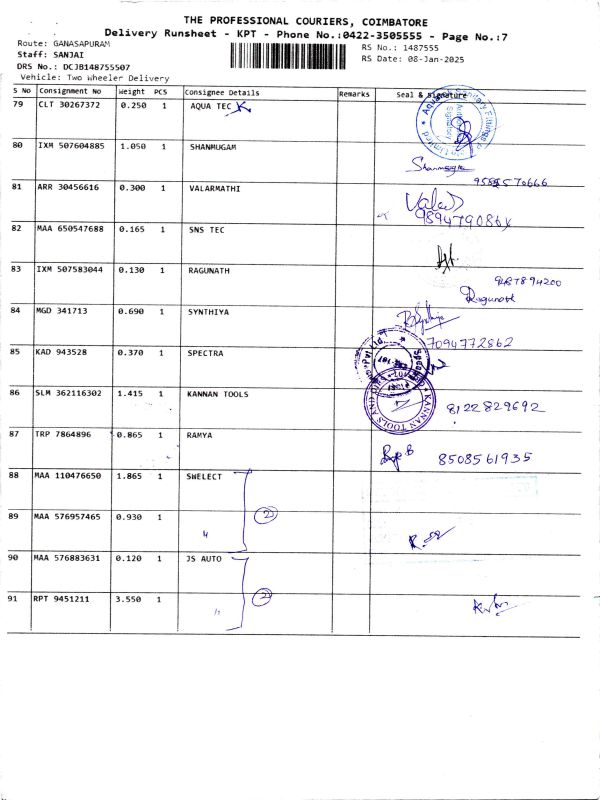 THE PROFESSIONAL COURIERS, COIMBATORE
Delivery Runsheet - KPT - Phone No.:0422-3505555 - Page No.:7
Route: GANASAPURAM
Staff: SANJAI
DRS No.: DCJB148755507
Vehicle: Two Wheeler Delivery
RS No.: 1487555
RS Date: 08-Jan-2025
S No Consignment No Weight PCS Consignee Details Remarks Seal & Signature
79 CLT 30267372 0.250 1 AQUA TEC
80 IXM 507604885 1.050 1 SHANMUGAM
81 ARR 30456616 0.300 1 VALARMATHI
82 MAA 650547688 0.165 1 SNS TEC
83 IXM 507583044 0.130 1 RAGUNATH
Ragunath
84 MGD 341713 0.690 1 SYNTHIYA
7094772862
85 KAD 943528 0.370 1 SPECTRA
86 SLM 362116302 1.415 1 KANNAN TOOLS
KANNAN TOOLS AND
8122829692
87 TRP 7864896 0.865 1 RAMYA
8508561935
88 MAA 110476650 1.865 1 SWELECT
2
89 MAA 576957465 0.930 1
90 MAA 576883631 0.120 1 JS AUTO
2
91 RPT 9451211 3.550 1